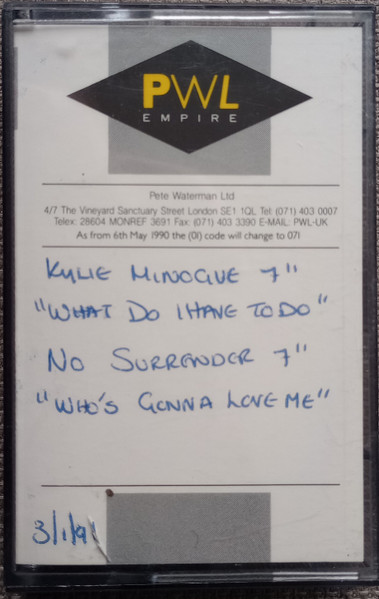 PWL
EMPIRE
Pete Waterman Ltd
4/7 The Vineyard Sanctuary Street London SE1 1QL Tel: (071) 403 0007
Telex: 28604 MONREF 3691 Fax: (071) 403 3390 E-MAIL: PWL-UK
As from 6th May 1990 the (01) code will change to 071
KYLIE MINOGUE 7"
"WHAT DO I HAVE TO DO"
NO SURRENDER 7"
"WHO'S GONNA LOVE ME"
3/1/91